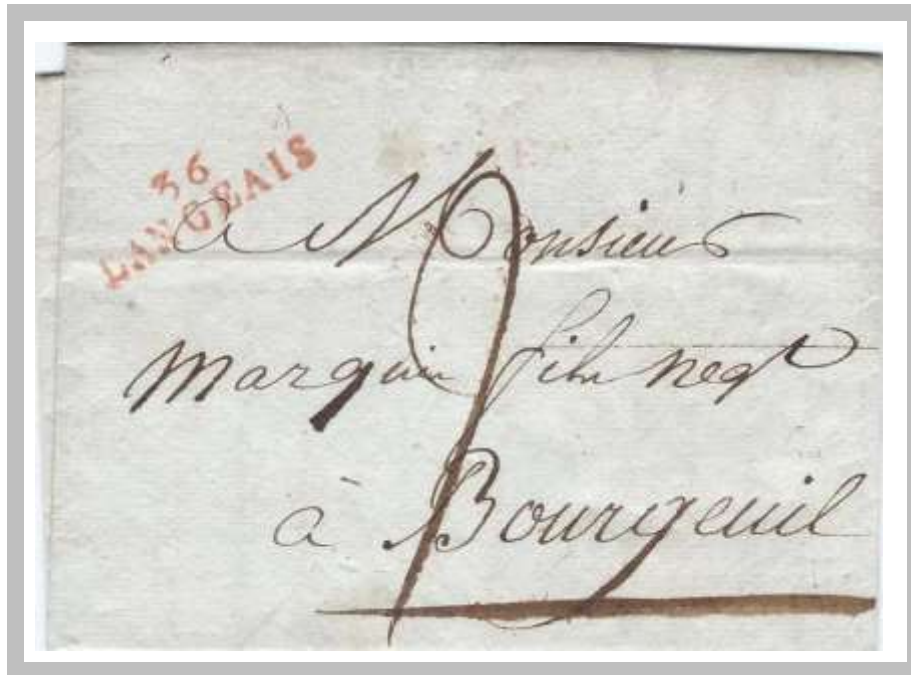 36
LANGEAIS
a Monsieur
Marquis fils negt
à Bourgeuil